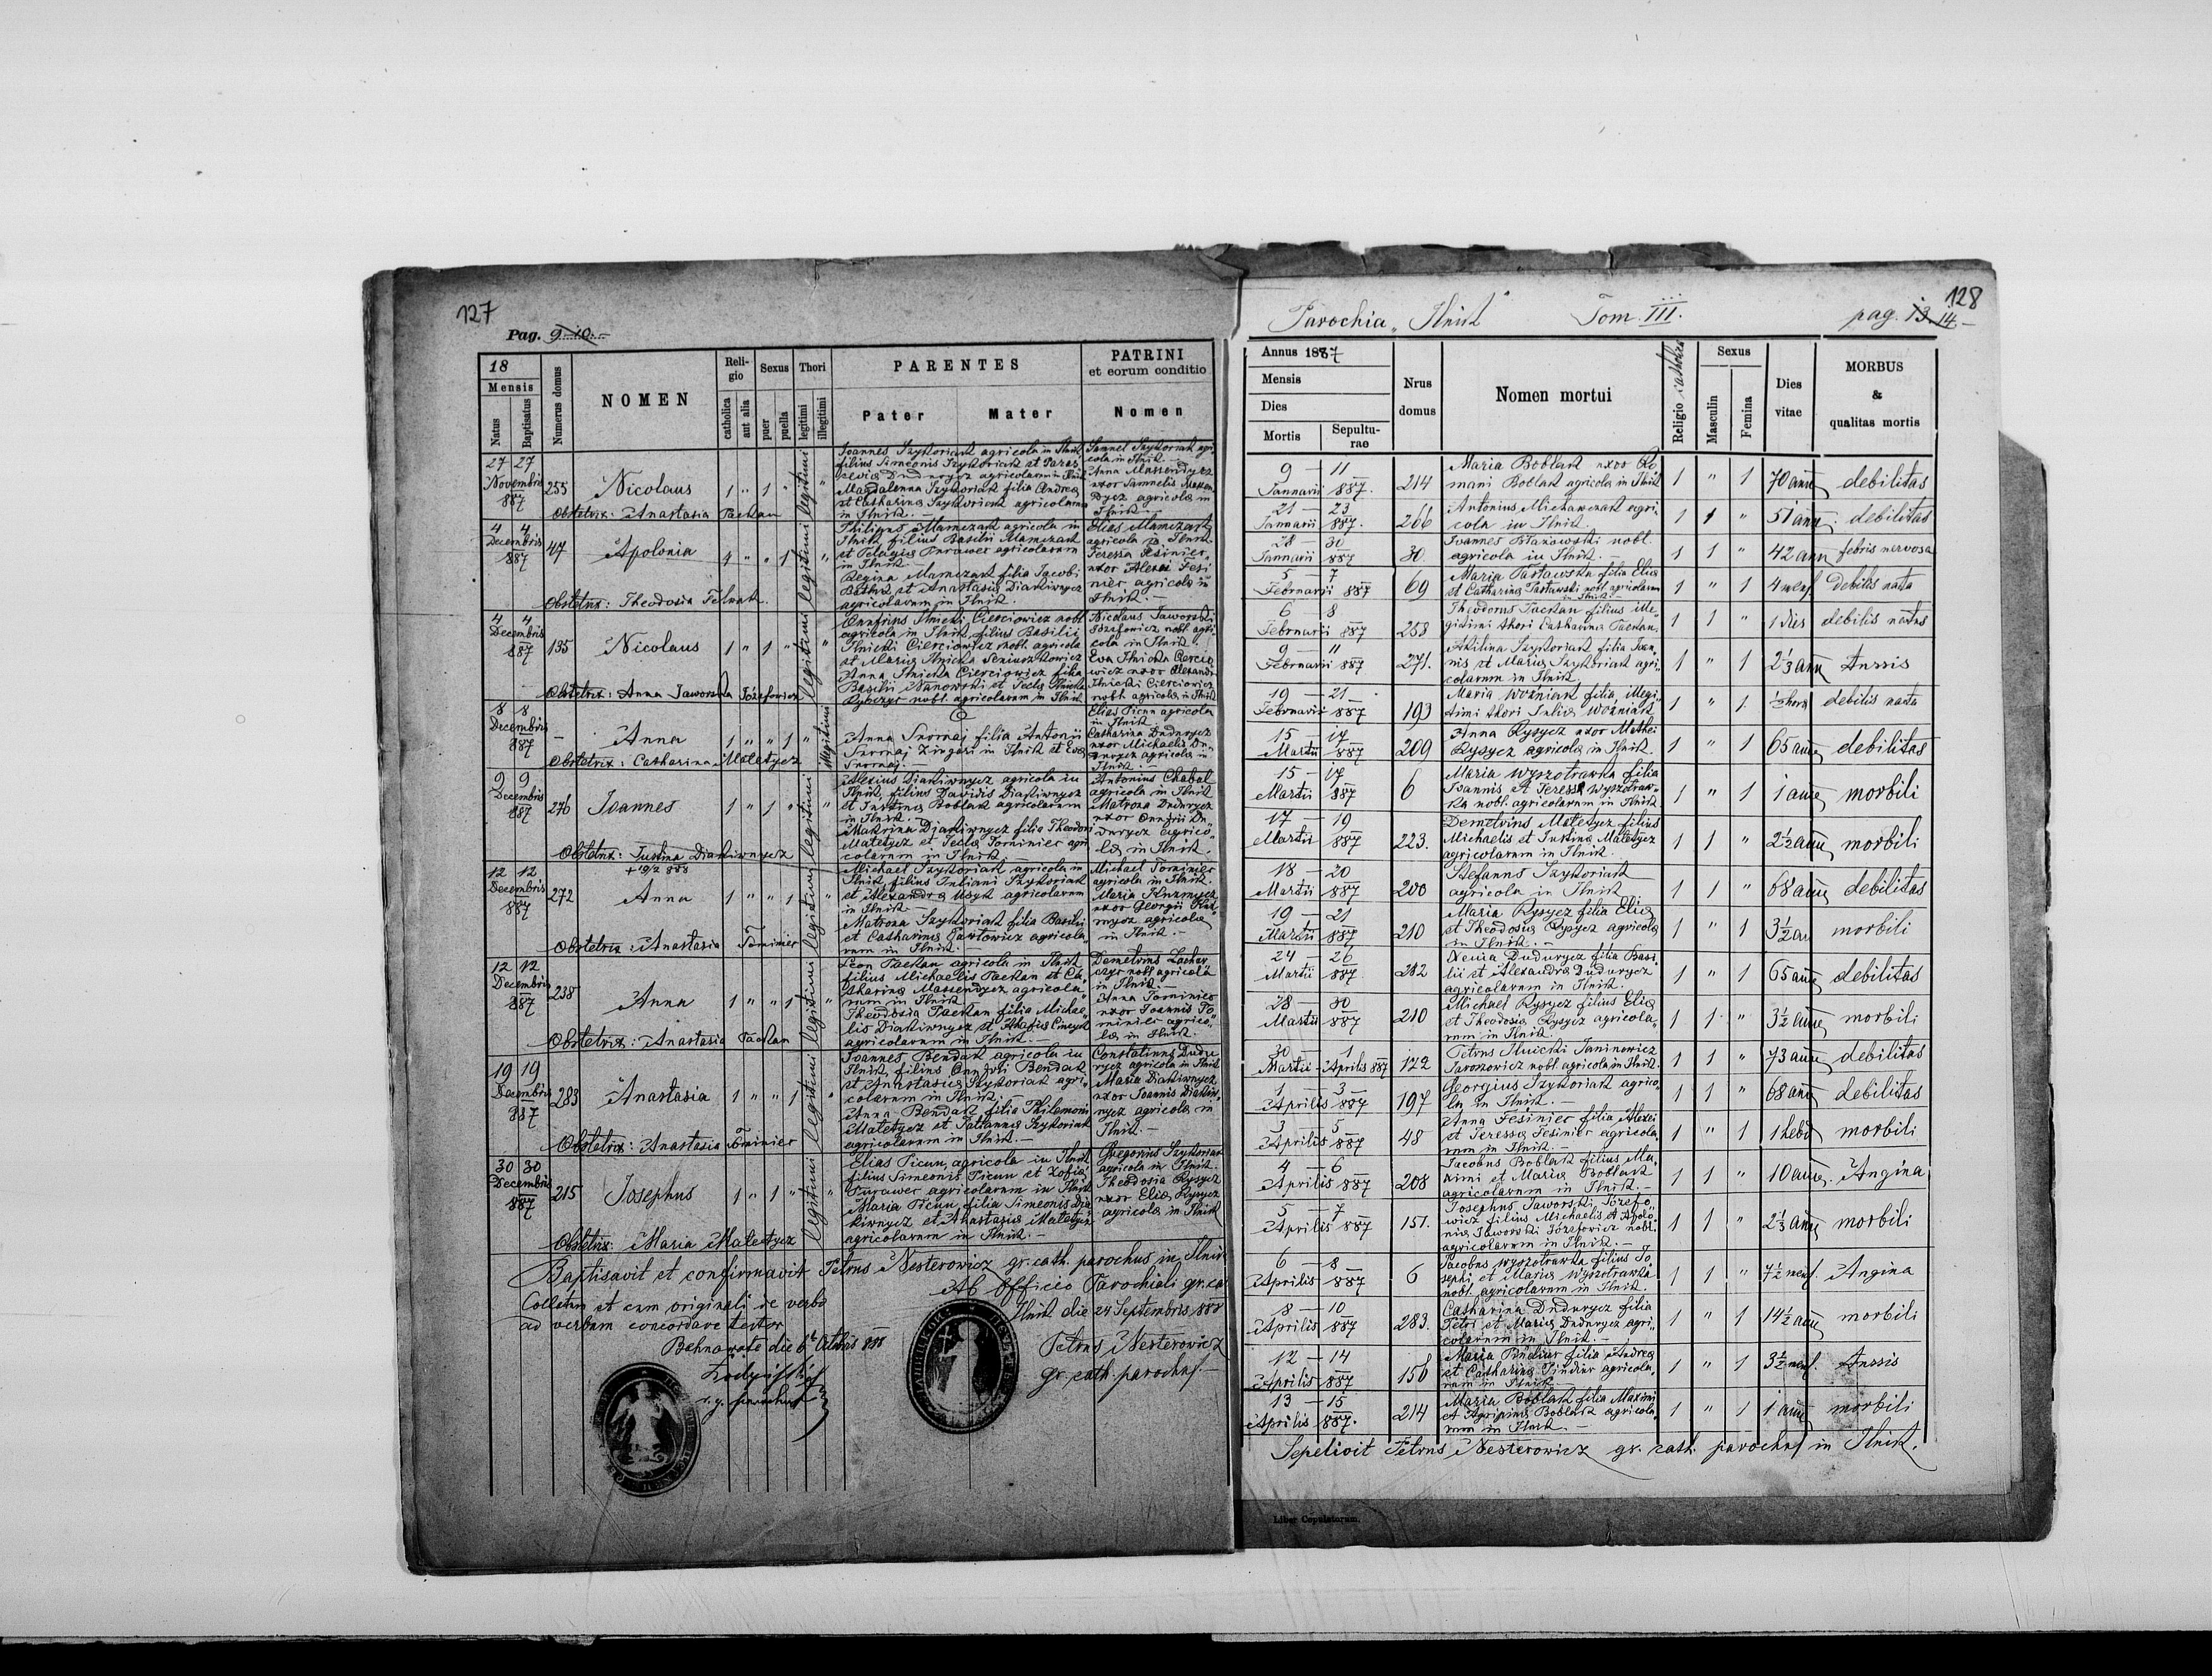 127
Pag. 9-10.-
18
Mensis
Natus
Baptisatus
Numerus domus
NOMEN
Reli-
gio
catholica
aut alia
Sexus
puer
puella
Thori
legitimi
illegitimi
PARENTES
Pater Mater
PATRINI
et eorum conditio
Nomen
27 27
Novembris
887
255
Nicolaus
1 " 1 "
legitimi
"
Joannes Szykoriak agricola in Ilnik
filius Simeonis Szykoriak et Paras
Magdalenna Szykoriak filia Andreae
et Catharina Szykoriak agricolarum
in Ilnik.-
Samuel Szykoriak agri
cola in Ilnik.-
Anna Massendycz
uxor Samuelis Massen
dycz agricola in
Ilnik.-
Obstetrix: Anastasia Packan
4 4
Decembris
887
47
Apolonia
1 " " 1
legitimi
"
Philippus Mamczak agricola in
Ilnik filius Basilii Mamczak
et Pelagia Purawec agricolarum
in Ilnik.-
Regina Mamczak filia Jacobi
et Anastasia Diakiwnycz
agricolarum in Ilnik.-
Elias Mamczak
agricola in Ilnik
Teressa Fesinier
uxor Alexei Fesi
nier agricola in
Ilnik.-
Obstetrix: Theodosia
4 4
Decembris
887
135
Nicolaus
1 " 1 "
legitimi
"
Onufrius Ilnicki Cierciowicz nobl.
agricola in Ilnik, filius Basilii
Ilnicki Cierciowicz nobl. agricola
et Maria Ilnicka
Anna Ilnicka Cierciowicz filia
Basilii et Tecla Ilnicka
nobl. agricolarum in Ilnik
Nicolaus Jaworski
Józefowicz nobl. agri
cola in Ilnik.
Eva Ilnicka Ciercio
wicz uxor Alexandri
Ilnicki Cierciowicz
nobl. agricola in Ilnik
Obstetrix: Anna Jaworska Józefowicz
8 8
Decembris
887
-
Anna
1 " " 1
"
illegitimi
Anna filia Antonii
Zingari in Ilnik et Eva
Elias Picun agricola
in Ilnik
Catharina Dudurycz
uxor Michaelis Du-
durycz agricola in
Ilnik.-
Obstetrix: Catharina Maletycz
9 9
Decembris
887
276
Joannes
1 " 1 "
legitimi
"
Alexius Diakiwnycz agricola in
Ilnik, filius Davidis Diakiwnycz
et Justina Boblak agricolarum
in Ilnik.-
Makrina Djakiwnycz filia Theodori
Maletycz et Tecla Tominier agri
colarum in Ilnik.-
Antonius Chabal
agricola in Ilnik
Matrona Dudurycz
uxor Onufrii Du-
durycz agrico-
la in Ilnik.
Obstetrix: Justina Diakiwnycz
+ 19/2 888
12 12
Decembris
887
272
Anna
1 " " 1
legitimi
"
Michael Szykoriak agricola in
Ilnik filius Juliani Szykoriak
et Alexandra Usyk agricolarum
in Ilnik.-
Matrona Szykoriak filia Basilii
et Catharina Pawlowicz agricola-
rum in Ilnik.-
Michael Tominier
agricola in Ilnik.
Maria
uxor Georgii
agricola
in Ilnik.-
Obstetrix: Anastasia Tominier
12 12
Decembris
887
238
Anna
1 " " 1
legitimi
"
Leon Packan agricola in Ilnik
filius Michaelis Packan et Ca-
tharina Massendycz agricola-
rum in Ilnik
Theodosia Packan filia Michae-
lis Diakiwnycz et
agricolarum in Ilnik.-
Demetrius
nobl. agricola
in Ilnik.-
Anna Tominier
uxor Joannis To-
minier agrico-
la in Ilnik.
Obstetrix: Anastasia Packan
19 19
Decembris
887
283
Anastasia
1 " " 1
legitimi
"
Joannes Bendak agricola in
Ilnik, filius Onufrii Bendak
et Anastasia Szykoriak agri-
colarum in Ilnik.-
Anna Bendak filia Philemoni
Maletycz et Tatianna Szykoriak
agricolarum in Ilnik.-
Constatinus Dudu
rycz agricola in Ilnik
Maria Diakiwnycz
uxor Joannis Diakiw-
nycz agricola in
Ilnik.-
Obstetrix: Anastasia Tominier
30 30
Decembris
887
215
Josephus
1 " 1 "
legitimi
"
Elias Picun, agricola in Ilnik
filius Simeonis Picun et Zofia
Purawec agricolarum in Ilnik
Maria Picun, filia Simeonis Dia
kiwnycz et Anastasia Maletycz
agricolarum in Ilnik.-
Gregorius Szykoriak
agricola in Ilnik.
Theodosia Rysycz
uxor Elia Rysycz
agricola in Ilnik
Obstetrix: Maria Maletycz
Baptisavit et confirmavit Petrus Nesterowicz gr. cath. parochus in Ilnik
Ab officio Parochiali gr. ca
Ilnik die 24 Septembris 888
Collatum et cum originali de verbo
ad verbum concordare testor
die 6t Octobris 888
Petrus Nesterowicz
gr. cath. parochus.-
128
Parochia "Ilnik" Tom. III.
pag. 13. 14.-
Annus 1887
Mensis
Dies
Mortis
Sepultu-
rae
Nrus
domus
Nomen mortui
Religio catholica
Sexus
Masculin
Femina
Dies
vitae
MORBUS
&
qualitas mortis
9 - 11
Januarii 887.
214
Maria Boblak uxor Ro
mani Boblak agricola in Ilnik
1 " 1
70 anni
debilitas
21 - 23
Januarii 887.
266
Antonius Michawczak agri-
cola in Ilnik.
1 1 "
51 anni
debilitas
28 - 30
Januarii 887
30
Joannes nobl.
agricola in Ilnik.-
1 1 "
42 ann
febris nervosa
5 - 7
Februarii 887
69
Maria Tarlawska filia Elia
et Catharina Tarlawski nobl. agricolarum
in Ilnik.-
1 " 1
4 mens.
debilis nata
6 8
Februarii 887
258
Theodorus Packan filius ille-
gitimi thori Catharina Packan.
1 1 "
1 dies
debilis natus
9 - 11
Februarii 887
271.
Akilina Szykoriak filia Joan-
nis et Maria Szykoriak agri-
colarum in Ilnik
1 " 1
2 1/3 ann
Tussis
19 - 21
Februarii 887
193
Maria Woźniak filia illegi-
timi thori Julia Woźniak
1 " 1
1/2 hora
debilis nata
15 - 17
Martii 887
209
Anna Rysycz uxor Mathei
Rysycz agricola in Ilnik.
1 " 1
65 anni
debilitas
15 - 17
Martii 887
6
Maria Wyszotrawka filia
Joannis et Teressa Wyszotraw-
ka nobl. agricolarum in Ilnik
1 " 1
1 anni
morbili
17 - 19
Martii 887
223.
Demetrius Maletycz filius
Michaelis et Justina Maletycz
agricolarum in Ilnik.
1 1 "
2 1/2 anni
morbili
18 - 20
Martii 887
200
Stefanus Szykoriak
agricola in Ilnik
1 1 "
68 anni
debilitas
19 - 21
Martii 887
210
Maria Rysycz filia Elia
et Theodosia Rysycz agricola
in Ilnik.-
1 " 1
3 1/2 an
morbili
24 - 26
Martii 887.
282
Xenia Dudurycz filia Basi-
lii et Alexandra Dudurycz
agricolarum in Ilnik.
1 " 1
65 anni
debilitas
28 - 30
Martii 887
210
Michael Rysycz filius Elia
et Theodosia Rysycz agricola-
rum in Ilnik.
1 1 "
3 1/2 anni
morbili
30 1
Martii - Aprilis 887
122
Petrus Ilnicki Janinowicz
nobl. agricola in Ilnik.
1 1 "
73 anni
debilitas
1 - 3
Aprilis 887
197
Georgius Szykoriak agrico-
la in Ilnik.-
1 1 "
68 anni
debilitas
3 5
Aprilis 887
48
Anna Fesinier filia Alexei
et Teressa Fesinier agricola-
rum in Ilnik.-
1 " 1
1 hebd
morbili
4 - 6
Aprilis 887
208
Jacobus Boblak filius Ma-
ximi et Maria Boblak
agricolarum in Ilnik.-
1 1 "
10 anni.
Angina
5 - 7
Aprilis 887
151.
Josephus Jaworski, Józefo-
wicz filius Michaelis et Apolo-
nia Jaworski Józefowicz nobl.
agricolarum in Ilnik.-
1 1 "
2 1/3 anni
morbili
6 - 8
Aprilis 887
6
Jacobus Wyszotrawka filius Jo-
sephi et Maria Wyszotrawka
nobl. agricolarum in Ilnik.
1 1 "
7 1/2 mens.
Angina
8 - 10
Aprilis 887
283.
Catharina Dudurycz filia
Petri et Maria Dudurycz agri-
colarum in Ilnik.-
1 " 1
14 1/2 anni
morbili
12 - 14
Aprilis 887
156
Maria Pindiur filia Andrea
et Catharina Pindiur agricola-
rum in Ilnik
1 " 1
3 1/2 mens.
Tussis
13 - 15
Aprilis 887.
214
Maria Boblak filia Maximi
et Agripina Boblak agricola-
rum in Ilnik
1 " 1
1 anni
morbili
Sepelivit Petrus Nesterowicz gr. cath. parochus in Ilnik.
Liber Copulatorum.